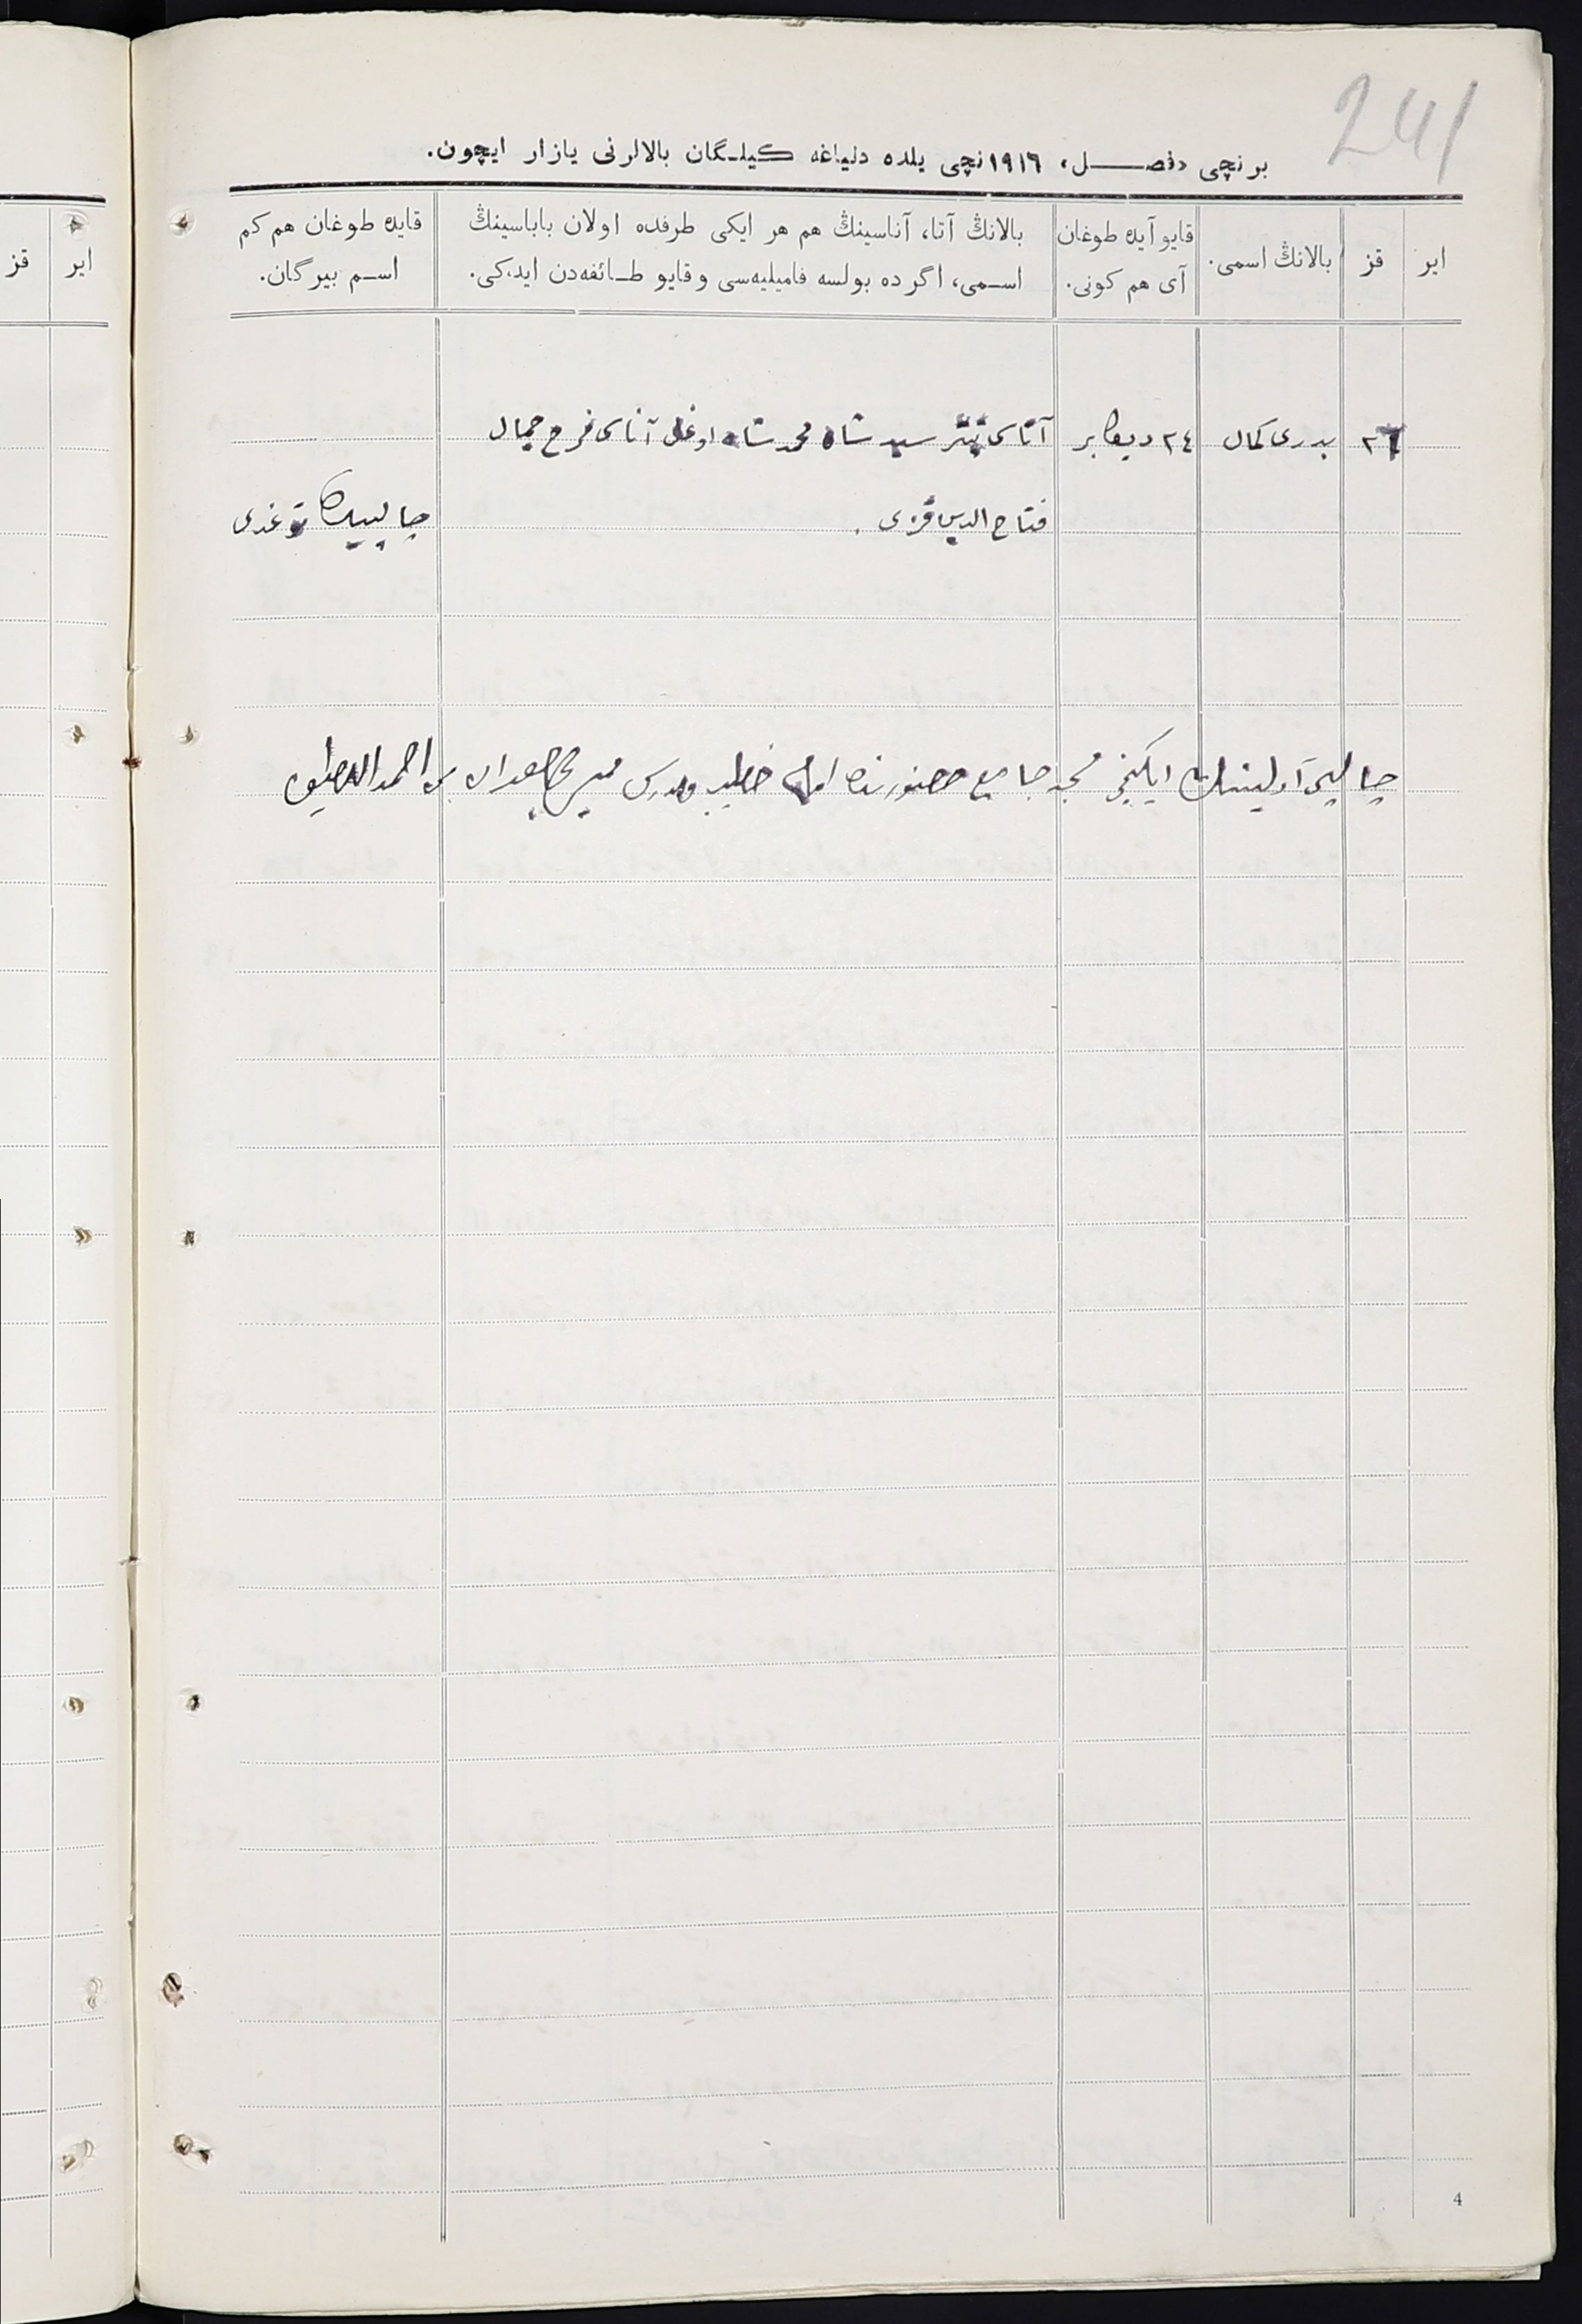 241
برنچی «فصل» ١٩١٦نچی یلده دنیاغه کیلگان بالالرنی یازار ایچون.
ایر
قز
بالانڭ اسمی.
قایو آیده طوغان
آی هم کونی.
بالانڭ آتا، آناسینڭ هم هر ایکی طرفده اولان باباسینڭ
اسمی، اگر ده بولسه فامیلیه‌سی و قایو طائفه‌دن ایدکی.
قایده طوغان هم کم
اسم بیرگان.
ایر
قز
٢٦ بدری کمال ٢٤ دیکابر آتاسی تپتر سید شاه محمد شاه اوغلی آناسی فرح جمال
فتاح الدین قزی. چالپیده توغدی
چالپی آولینڭ ایکنچی مسجد جامع حضورنده امام خطیب و مدرس احمد
4